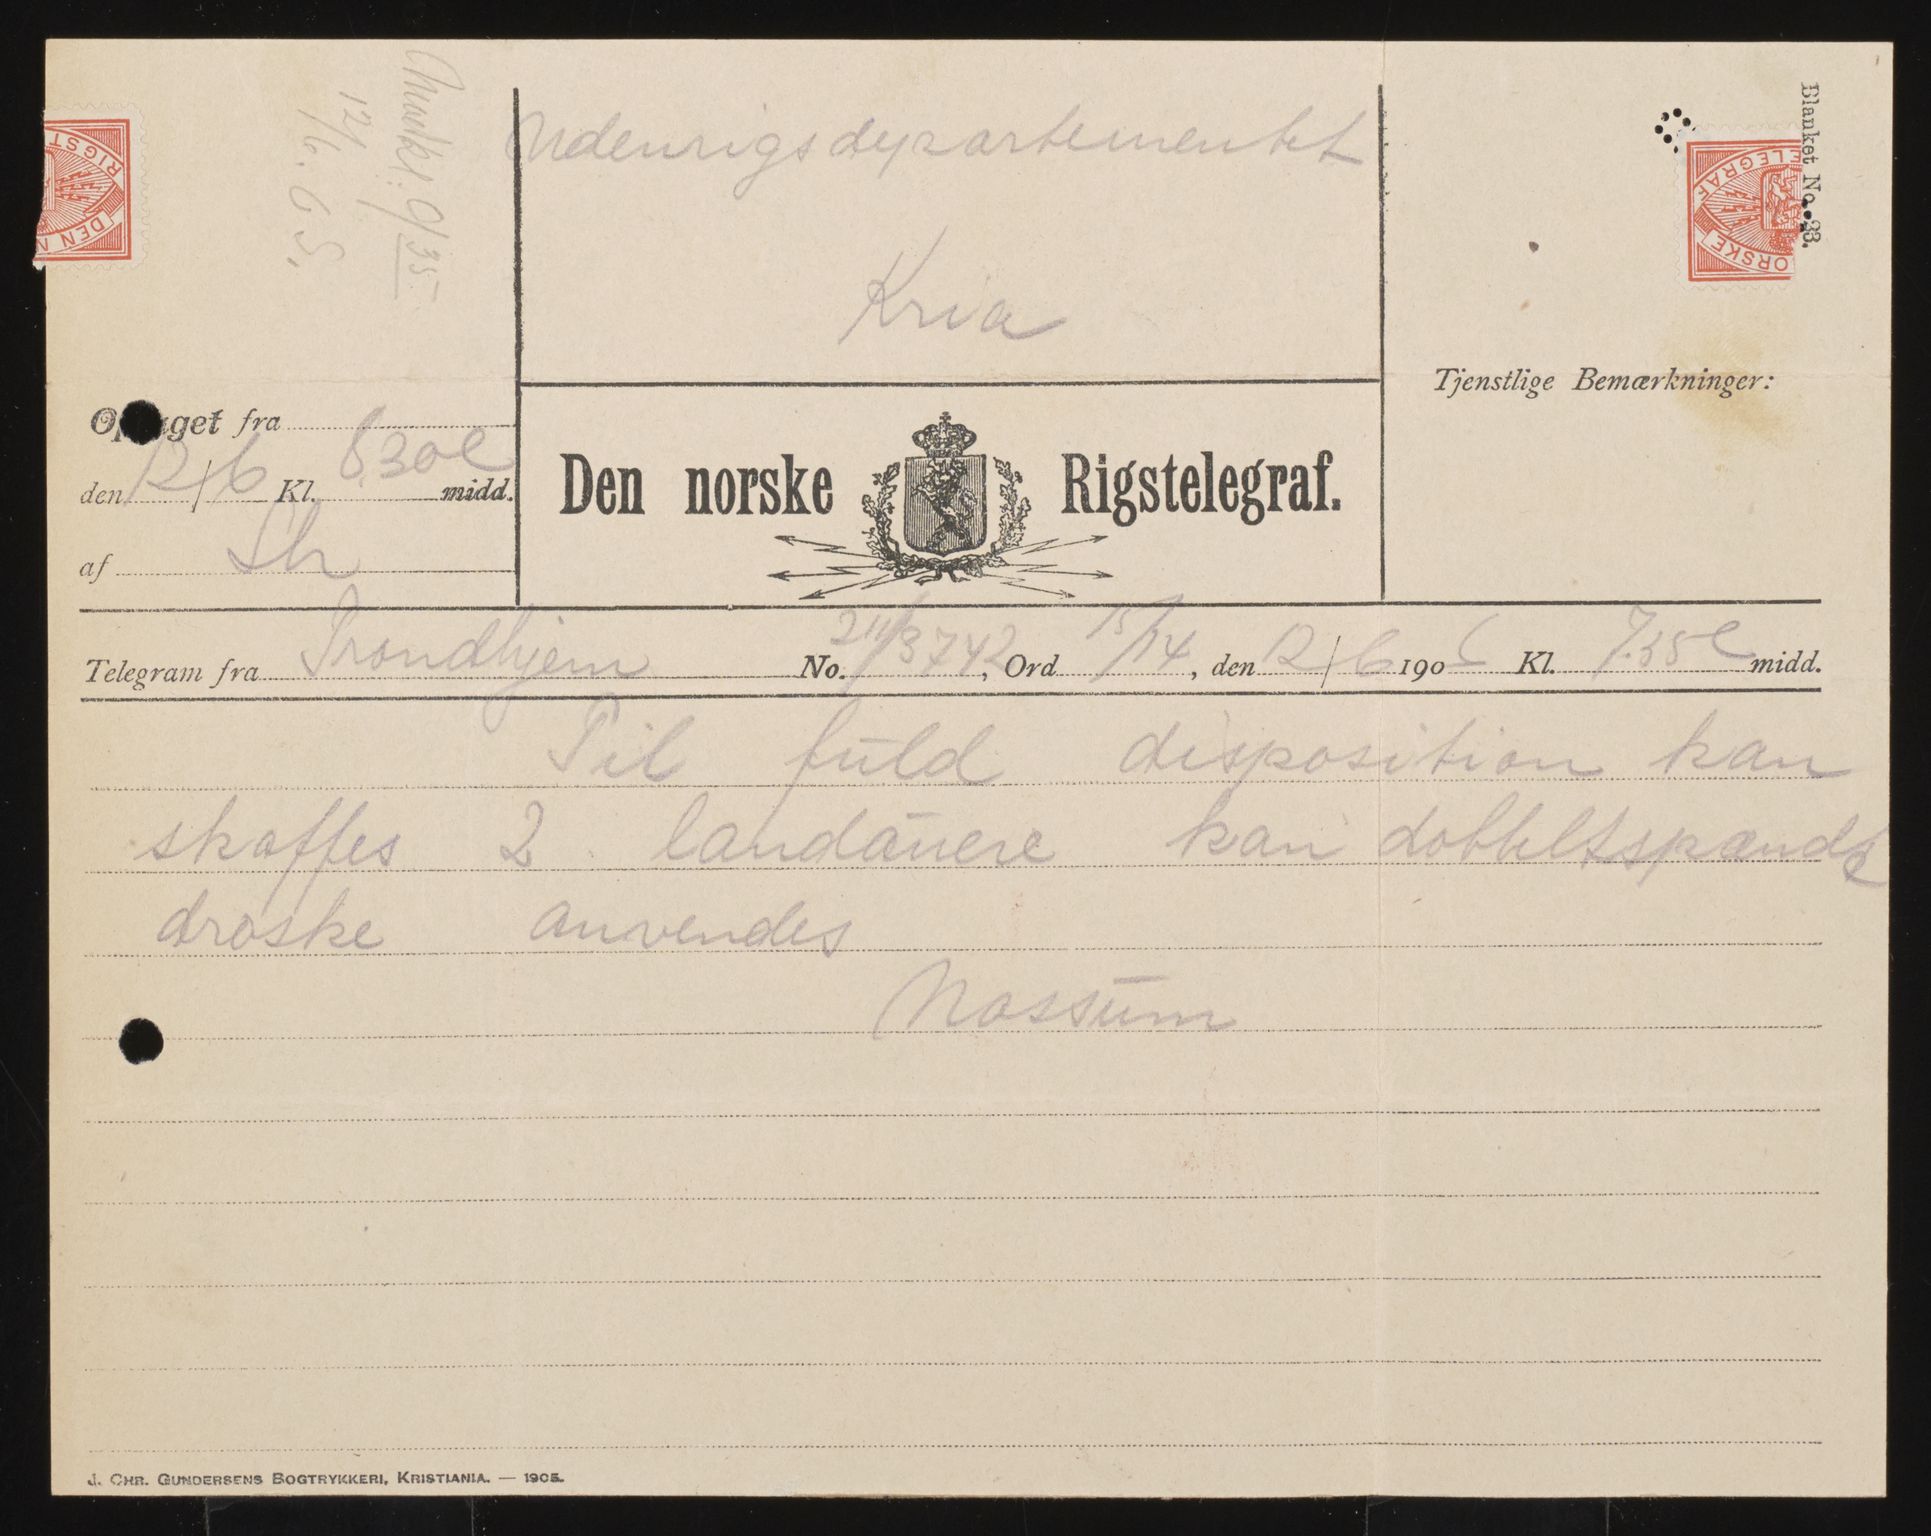 Udenrigsdepartementet
Kria
Blanket No. 23.
Tjenstlige Bemærkninger:
Optaget fra
den 12/6 Kl. 8.30 e midd.
af
Den norske Rigstelegraf.
Telegram fra Trondhjem No. 3742, Ord 15/14, den 12/6 1906 Kl. 7.35 e midd.
Til fuld disposition kan
skaffes 2 landauere kan dobbeltspændt
droske anvendes
Mossum
J. Chr. Gundersens Bogtrykkeri, Kristiania. — 1905.